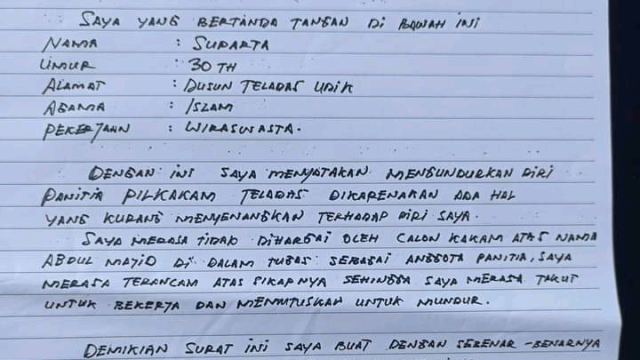 SAYA YANG BERTANDA TANGAN DI BAWAH INI
NAMA : SUDARTA
UMUR : 30 TH
ALAMAT : DUSUN TELADAS UDIK
AGAMA : ISLAM
PEKERJAAN : WIRASWASTA.
DENGAN INI SAYA MENYATAKAN MENGUNDURKAN DIRI
PANITIA PILKAKAM TELADAS DIKARENAKAN ADA HAL
YANG KURANG MENYENANGKAN TERHADAP DIRI SAYA.
SAYA MERASA TIDAD DIHARGAI OLEH CALON KAKAM ATAS NAMA
ABDUL MAJID DI DALAM TUGAS SEBAGAI ANGGOTA PANITIA, SAYA
MERASA TERANCAM ATAS SIKAPNYA SEHINGGA SAYA MERASA TAKUT
UNTUK BEKERJA DAN MEMUTUSKAN UNTUK MUNDUR.
DEMIKIAN SURAT INI SAYA BUAT DENGAN SEBENAR-BENARNYA